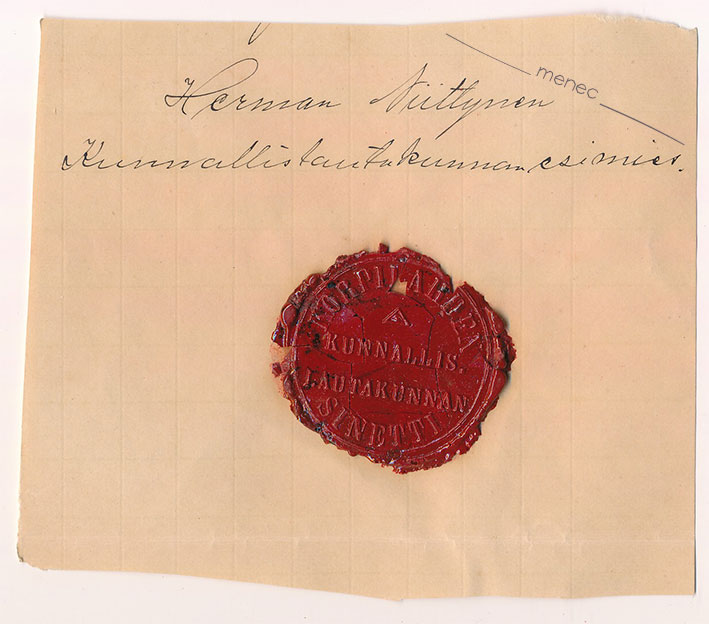 menec
Herman Niittynen
Kunnallislautakunnan esimies.
KORPILAHDEN
KUNNALLIS.
LAUTAKUNNAN
SINETTI